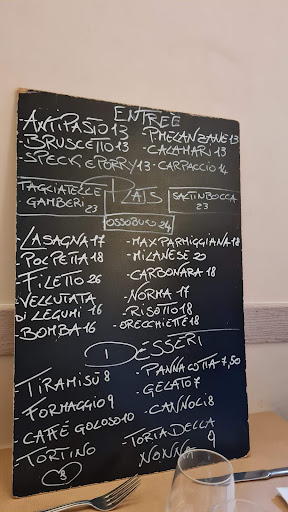 ENTREE
- ANTIPASTO 13
- BRUSCETTO 13
- SPECK e PORRY 13
- P. MELANZANE 13
- CALAMARI 13
- CARPACCIO 14
PLAS
TAGLIATELLE
GAMBERI 23
SALTINBOCCA
23
OSSOBUCO 24
LASAGNA 17
POLPETTA 18
FILETTO 26
VELLUTATA
DI LEGUMI 16
- BOMBA 16
- MAX PARMIGGIANA 18
- MILANESE 20
- CARBONARA 18
- NORMA 17
- RISOTTO 18
- ORECCHIETTE 18
DESSERT
TIRAMISÙ 8
FORMAGGIO 9
- CAFFÈ GOLOSO 10
- TORTINO
8
- PANNA COTTA 7,50
- GELATO 7
- CANNOLI 8
- TORTA DELLA
NONNA 9